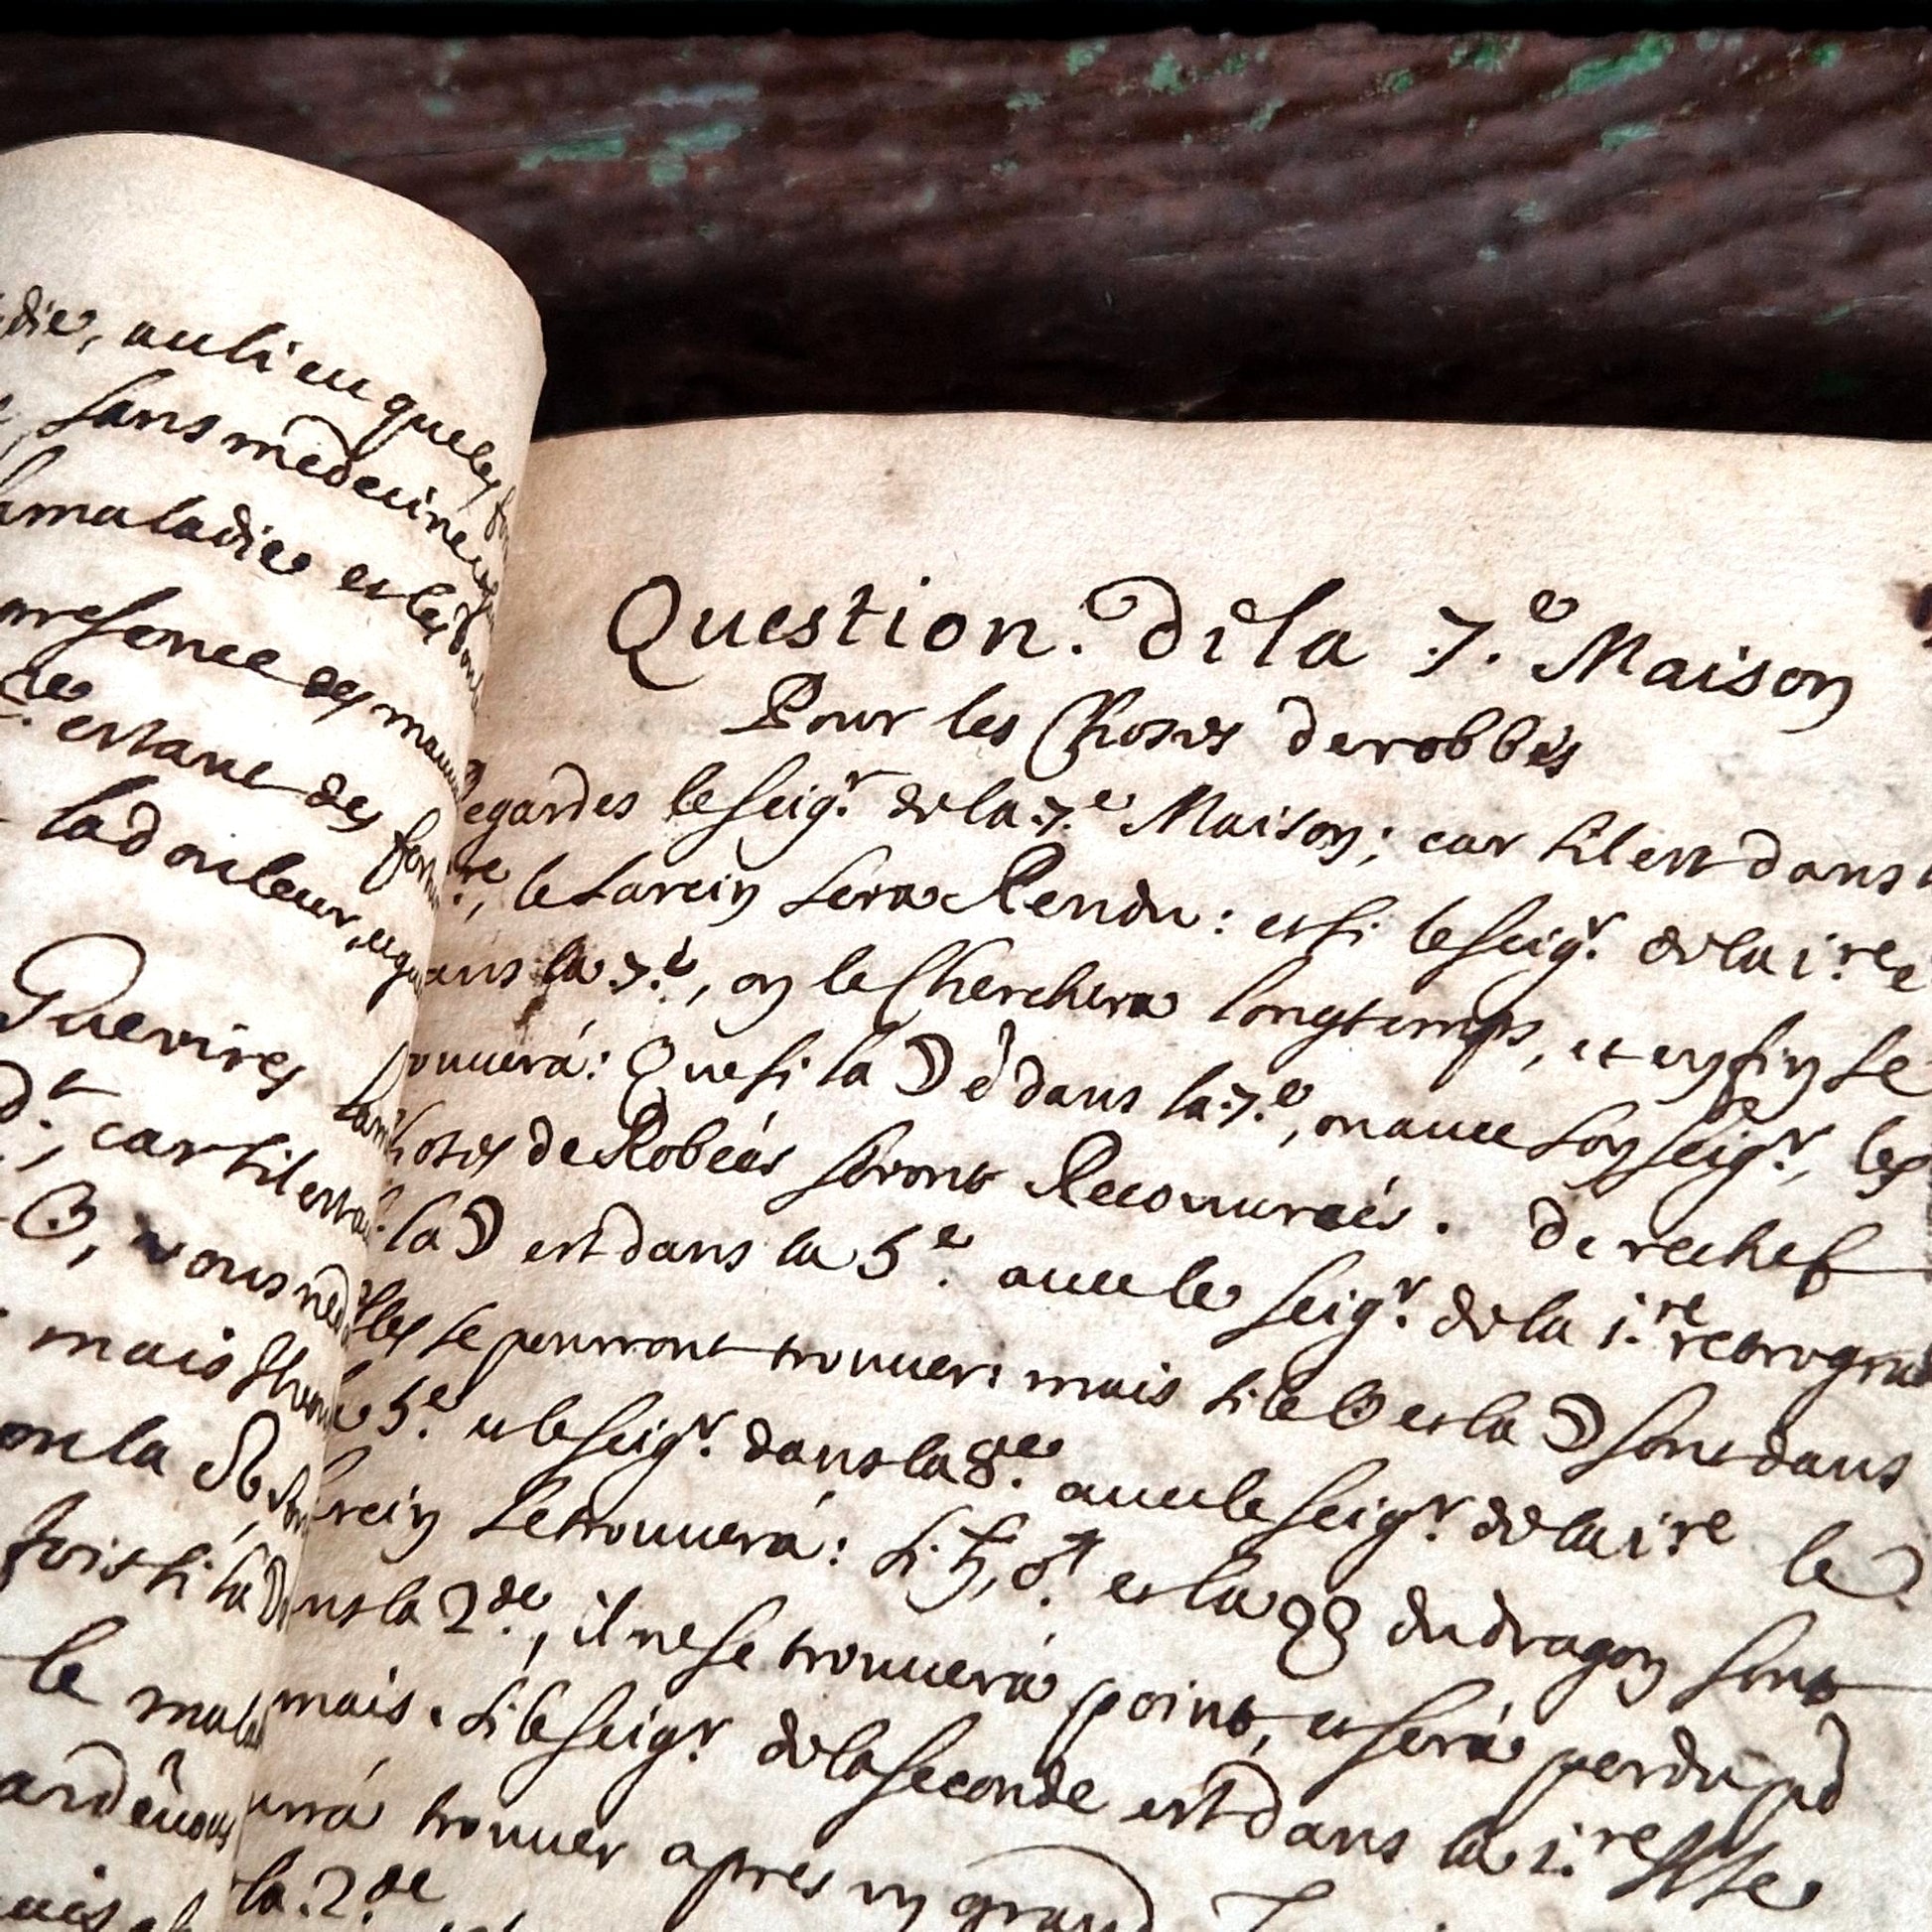 die, au lieu que les
sans medecine
la maladie et les
presence des mau
estant des
la douleur,
Guerires
car s'il est
☉, vous
mais
ou la
fois si la
le mala
Question. de la .7.e Maison
Pour les Choses derobbés
Regardes le seig.r de la .7.e Maison; car s'il est dans
re, le Larcin sera Rendu: et si le seig.r de la i.re e
ans la 7.e, on le Cherchera longtemps, et en fin se
ouuerá: Que si la ☽ é dans la .7.e, ou auec son seig.r, les
hoses de Robeés seront Recouurées. de rechef
la ☽ est dans la 5.e auec le seig.r de la i.re retrogra
Elles se pourront trouuer: mais si le ☉ et la ☽ sont dans
la 5.e u le seig.r dans la 8.e auec le seig.r de la i.re le
rcin se trouuerá: si ♄, ♂. et la ☋ du dragon sont
ns la 2.de, il ne se trouuerá point, et será perdu pd
mais. si le seig.r de la seconde est dans la i.re Il se
urrá trouuer apres un grand
la .2.de